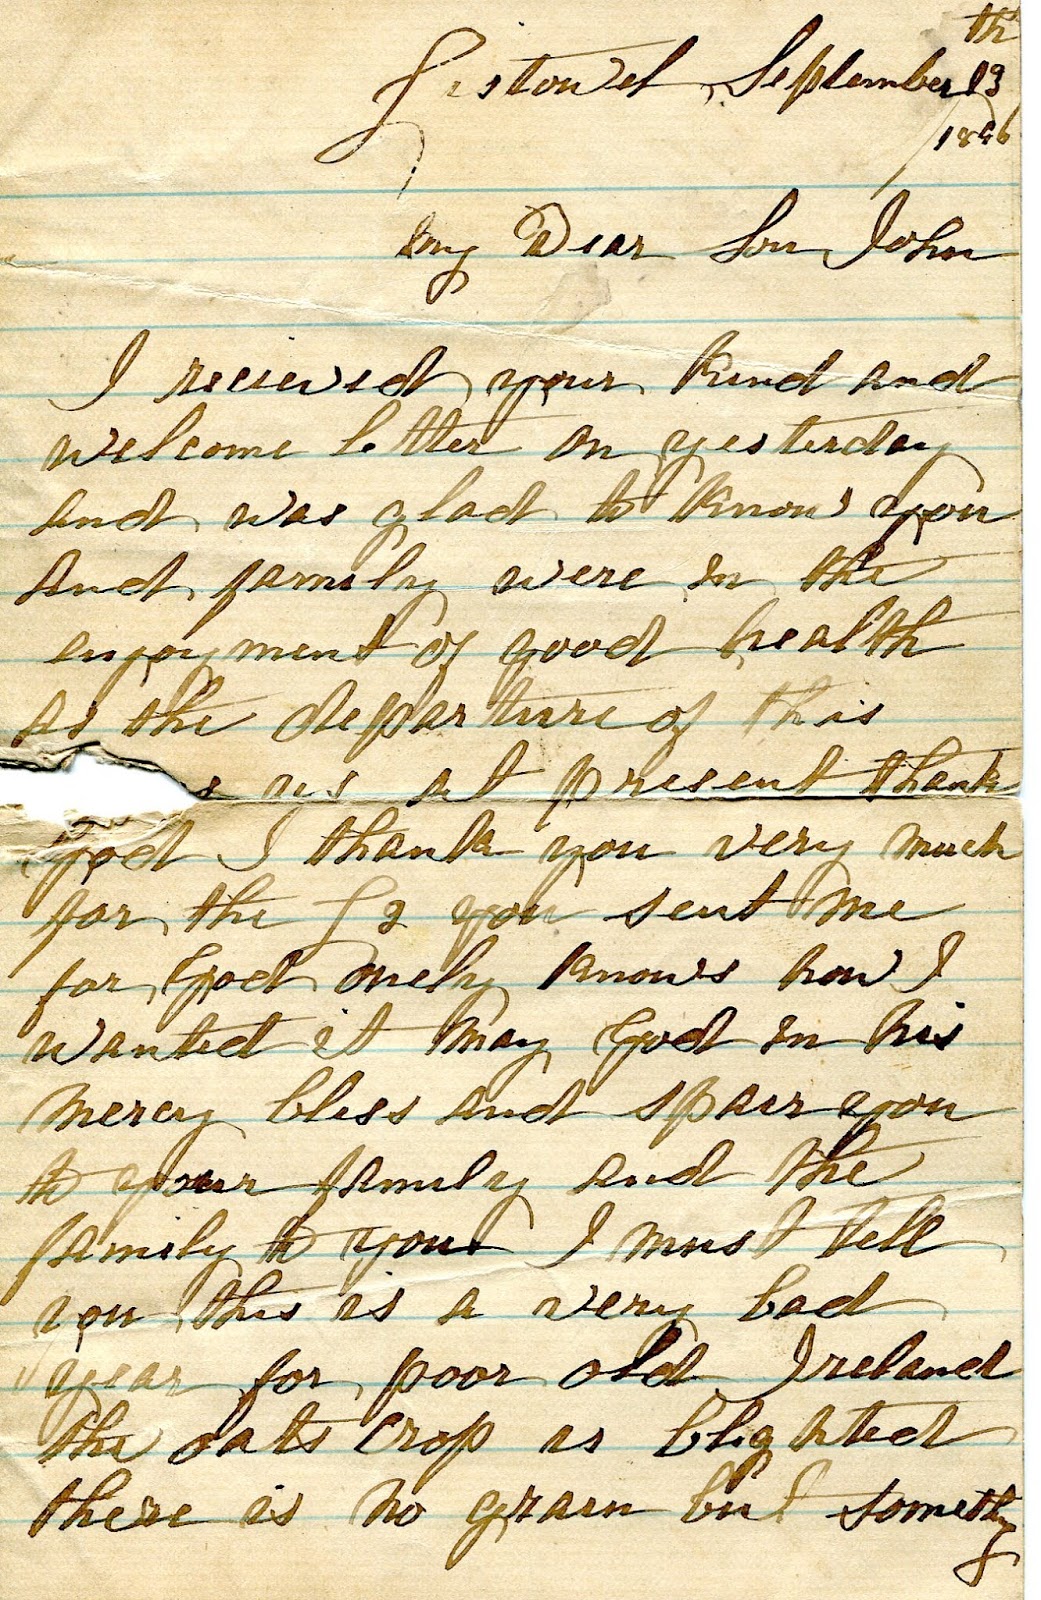 Listowel September 19th
1896
My Dear Son John
I recieved your kind and
welcome letter on yesterday
and was glad to know you
and family were in the
enjoyment of good health
as the departure of this
us at present thank
God I thank you very much
for the £2 you sent me
for God onely knows how I
wanted it may God in his
mercy bless and spair you
to your family and the
family to you I must tell
you this is a very bad
year for poor old Ireland
the oats crop is blighted
there is no grain but somethg